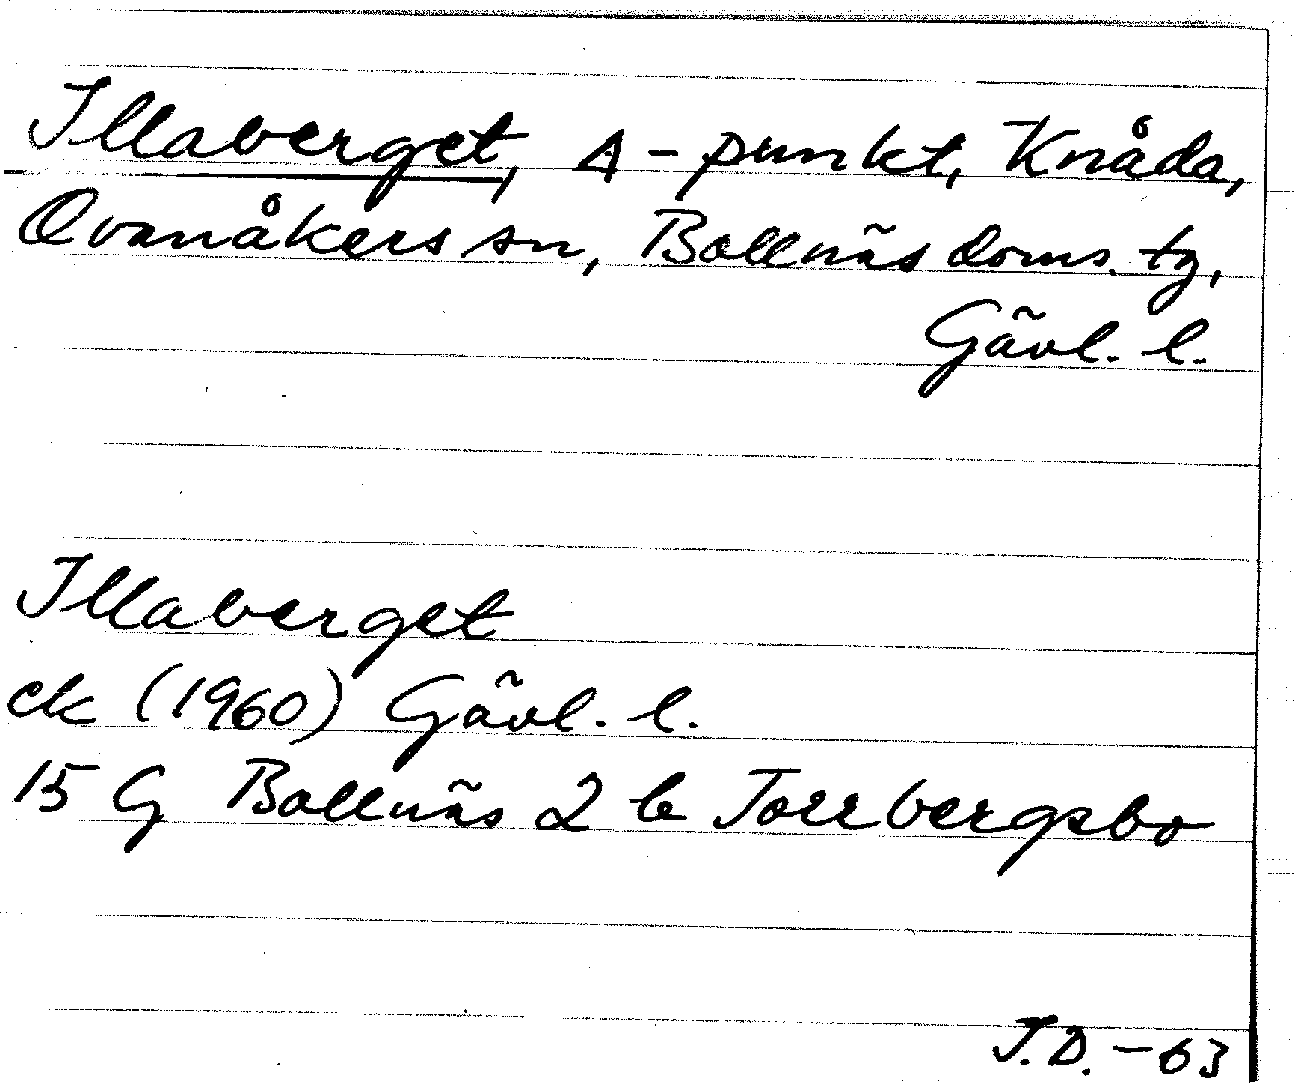 Illaberget, A-punkt, Knåda,
Ovanåkers sn, Bollnäs doms. tg,
Gävl. l.
Illaberget
ek (1960) Gävl. l.
15 G Bollnäs 2 b Torrbergsbo
J.D. -63